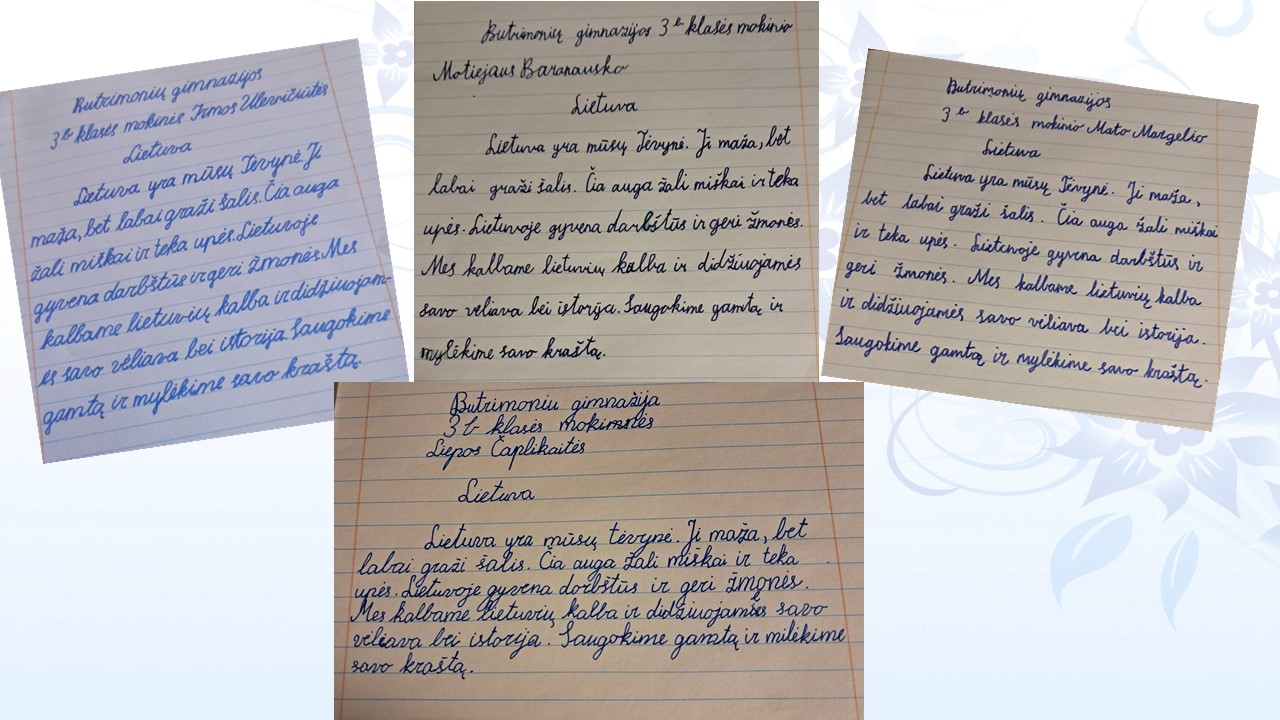 Butrimonių gimnazijos
3 b klasės mokinės Irmos Ulevičiūtės
Lietuva
Lietuva yra mūsų Tėvynė. Ji
maža, bet labai graži šalis. Čia auga
žali miškai ir teka upės. Lietuvoje
gyvena darbštūs ir geri žmonės. Mes
kalbame lietuvių kalba ir didžiuojam-
ės savo vėliava bei istorija. Saugokime
gamtą ir mylėkime savo kraštą.
Butrimonių gimnazijos 3 b klasės mokinio
Motiejaus Baranausko
Lietuva
Lietuva yra mūsų Tėvynė. Ji maža, bet
labai graži šalis. Čia auga žali miškai ir teka
upės. Lietuvoje gyvena darbštūs ir geri žmonės.
Mes kalbame lietuvių kalba ir didžiuojamės
savo vėliava bei istorija. Saugokime gamtą ir
mylėkime savo kraštą.
Butrimonių gimnazijos
3 b klasės mokinio Mato Margelio
Lietuva
Lietuva yra mūsų Tėvynė. Ji maža,
bet labai graži šalis. Čia auga žali miškai
ir teka upės. Lietuvoje gyvena darbštūs ir
geri žmonės. Mes kalbame lietuvių kalba
ir didžiuojamės savo vėliava bei istorija.
Saugokime gamtą ir mylėkime savo kraštą.
Butrimoniu gimnazija
3 b klasės mokinstės
Liepos Čaplikaitės
Lietuva
Lietuva yra mūsų tėvynė. Ji maža, bet
labai graži šalis. Čia auga žali miškai ir teka
upės. Lietuvoje gyvena dorbštūs ir geri žmonės.
Mes kalbame lietuvių kalba ir didžiuojamės savo
vėliava bei istorija. Saugokime gamtą ir milėkime
savo kraštą.